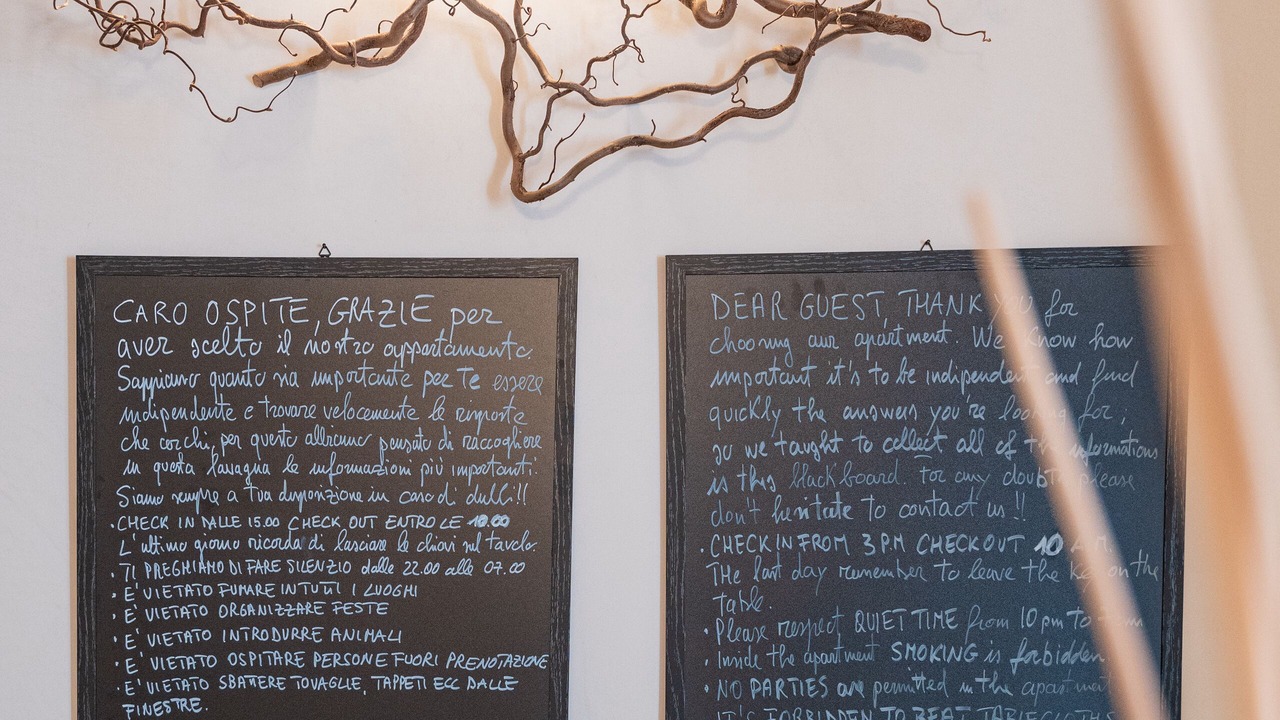 CARO OSPITE, GRAZIE per
aver scelto il nostro appartamento.
Sappiamo quanto sia importante per Te essere
indipendente e trovare velocemente le risposte
che cerchi, per questo abbiamo pensato di raccogliere
in questa lavagna le informazioni più importanti.
Siamo sempre a tua disposizione in caso di dubbi!!
· CHECK IN DALLE 15.00 CHECK OUT ENTRO LE 10.00
L'ultimo giorno ricorda di lasciare le chiavi sul tavolo.
· TI PREGHIAMO DI FARE SILENZIO dalle 22.00 alle 07.00
· E' VIETATO FUMARE IN TUTTI I LUOGHI
· E' VIETATO ORGANIZZARE FESTE
· E' VIETATO INTRODURRE ANIMALI
· E' VIETATO OSPITARE PERSONE FUORI PRENOTAZIONE
· E' VIETATO SBATTERE TOVAGLIE, TAPPETI ECC DALLE
FINESTRE.
DEAR GUEST, THANK YOU for
choosing our apartment. We know how
important it's to be independent and find
quickly the answers you're looking for,
so we taught to collect all of the informations
is this blackboard. For any doubt please
don't hesitate to contact us!!
· CHECK IN FROM 3 PM CHECK OUT 10 A.M.
The last day remember to leave the key on the
table.
· Please respect QUIET TIME from 10 pm to
· Inside the apartment SMOKING is forbidden
· NO PARTIES are permitted in the apartment
IT'S FORBIDDEN TO BEAT TABLECLOTHS